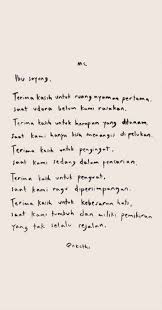 Ibu sayang,
Terima kasih untuk ruang nyaman pertama,
saat udara belum kami rasakan.
Terima kasih untuk harapan yang ditanam,
saat kami hanya bisa menangis di pelukan.
Terima kasih untuk pengingat,
saat kami sedang dalam pencarian.
Terima kasih untuk penguat,
saat kami ragu dipersimpangan.
Terima kasih untuk kebesaran hati,
saat kami tumbuh dan miliki pemikiran
yang tak selalu sejalan.